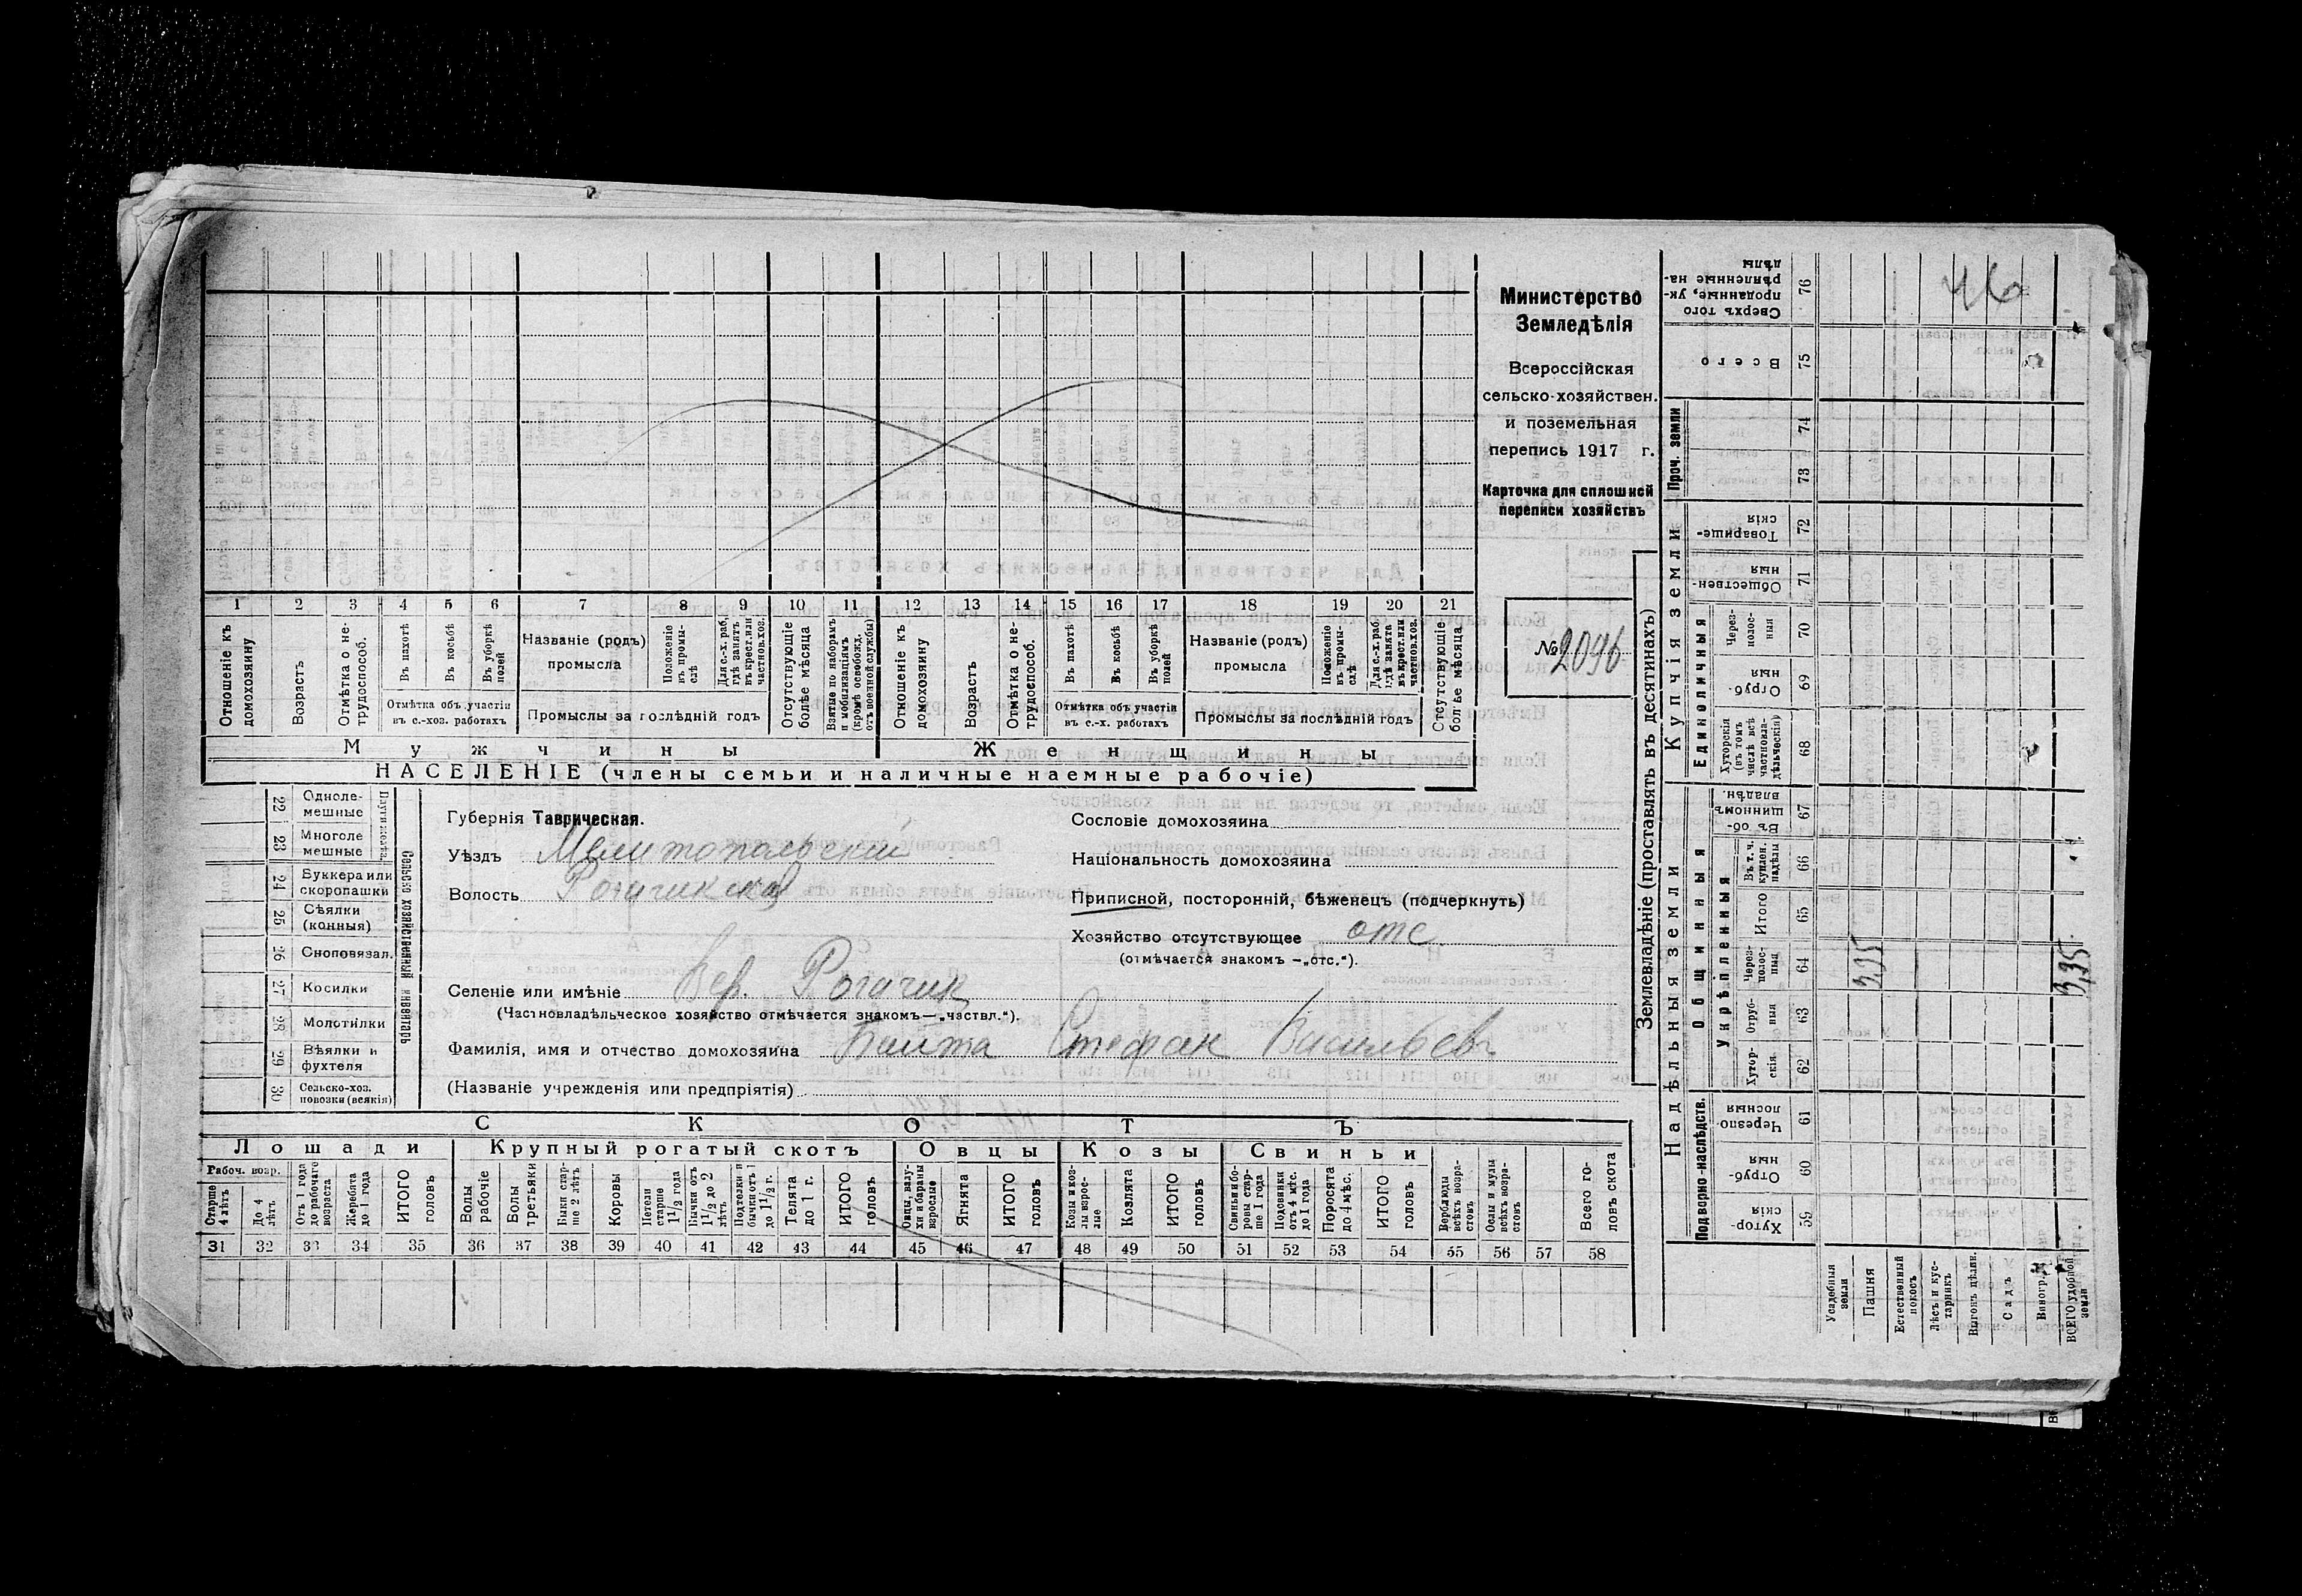 Министерство
Земледѣлія
Всероссійская
сельско-хозяйствен.
и поземельная
перепись 1917 г.
Карточка для сплошной
переписи хозяйствъ
№ 2096
46
1 2 3 4 5 6 7 8 9 10 11 12 13 14 15 16 17 18 19 20 21
Отношеніе къ домохозяину
Возрастъ
Отмѣтка о не-трудоспособ.
Въ пахотѣ
Въ косьбѣ
Въ уборкѣ полей
Отмѣтка объ участіи въ с.-хоз. работахъ
Названіе (родъ) промысла
Положеніе въ промы-слѣ
Для с.-х. раб. гдѣ занятъ въ крест. или частнов. хоз.
Промыслы за послѣдній годъ
Отсутствующіе болѣе мѣсяца
Взятые по наборамъ и мобилизаціямъ (кромѣ освобожд. отъ военной службы)
Отношеніе къ домохозяину
Возрастъ
Отмѣтка о не-трудоспособ.
Въ пахотѣ
Въ косьбѣ
Въ уборкѣ полей
Отмѣтка объ участіи въ с.-х. работахъ
Названіе (родъ) промысла
Положеніе въ промы-слѣ
Для с.-х. раб. гдѣ занята въ крест. или частнов. хоз.
Промыслы за послѣдній годъ
Отсутствующіе болѣе мѣсяца
Мужчины Женщины
НАСЕЛЕНІЕ (члены семьи и наличные наемные рабочіе)
22 Одноле-мешные
23 Многоле мешные
24 Буккера или скоропашки
25 Сѣялки (конныя)
26 Сноповязал.
27 Косилки
28 Молотилки
29 Вѣялки и фухтеля
30 Сельско-хоз. повозки (всякія)
Плуги желѣз.
Сельско хозяйственный инвентарь
Губернія Таврическая.
Уѣздъ Мелитопольскій
Волость Рогачикская
Селеніе или имѣніе Вер. Рогачик
(Частновладѣльческое хозяйство отмѣчается знакомъ—„частвл.“).
Фамилія, имя и отчество домохозяина Стефан Васильев
(Названіе учрежденія или предпріятія)
Сословіе домохозяина
Національность домохозяина
Приписной, посторонній, бѣженецъ (подчеркнуть)
Хозяйство отсутствующее отс
(отмѣчается знакомъ —„отс.“).
СКОТЪ
Лошади Крупный рогатый скотъ Овцы Козы Свиньи
Рабоч. возр.
Старше 4 лѣтъ
До 4 лѣтъ
Отъ 1 года до рабочаго возраста
Жеребята до 1 года
ИТОГО головъ
Волы рабочіе
Волы третьяки
Быки стар-ше 2 лѣтъ
Коровы
Нетели старше 1 1/2 года
Бычки отъ 1 1/2 до 2 лѣтъ
Подтелки и бычки отъ 1 до 1 1/2 г.
Телята до 1 г.
ИТОГО головъ
Овцы, валу-хи и бараны взрослые
Ягнята
ИТОГО головъ
Козы и коз-лы взрос-лые
Козлята
ИТОГО головъ
Свиньи и бо-ровы стар-ше 1 года
Подсвинки отъ 4 мѣс. до 1 года
Поросята до 4 мѣс.
ИТОГО головъ
Верблюды всѣхъ возра-стовъ
Ослы и мулы всѣхъ возра-стовъ
Всего го-ловъ скота
31 32 33 34 35 36 37 38 39 40 41 42 43 44 45 46 47 48 49 50 51 52 53 54 55 56 57 58
Землевладѣніе (проставлять въ десятинахъ)
Надѣльныя земли
Купчія земли
Подворно-наслѣдств.
Общинныя
Укрѣпленныя
Единоличныя
Проч. земли
59 Хутор-скія
60 Отруб-ныя
61 Черезпо лосныя
62 Хутор-скія
63 Отруб-ныя
64 Через-полос-ныя
65 Итого
66 Въ т. ч. куплен. надѣлы
67 Въ об-щинномъ владѣн.
68 Хуторскія (въ томъ числѣ всѣ частновла-дѣльческія)
69 Отруб-ныя
70 Через-полос-ныя
71 Обществен-ныя
72 Товарище-скія
73
74
75 Всего
76 Сверхъ того проданные, ук-рѣпленные на-дѣлы
Усадебныя земли
Пашня
Естественный покосъ
Лѣсъ и кус-тарникъ
Выгонъ цѣлин.
Садъ
Виногр.
ВСЕГО удобной земли
3,35
3,35